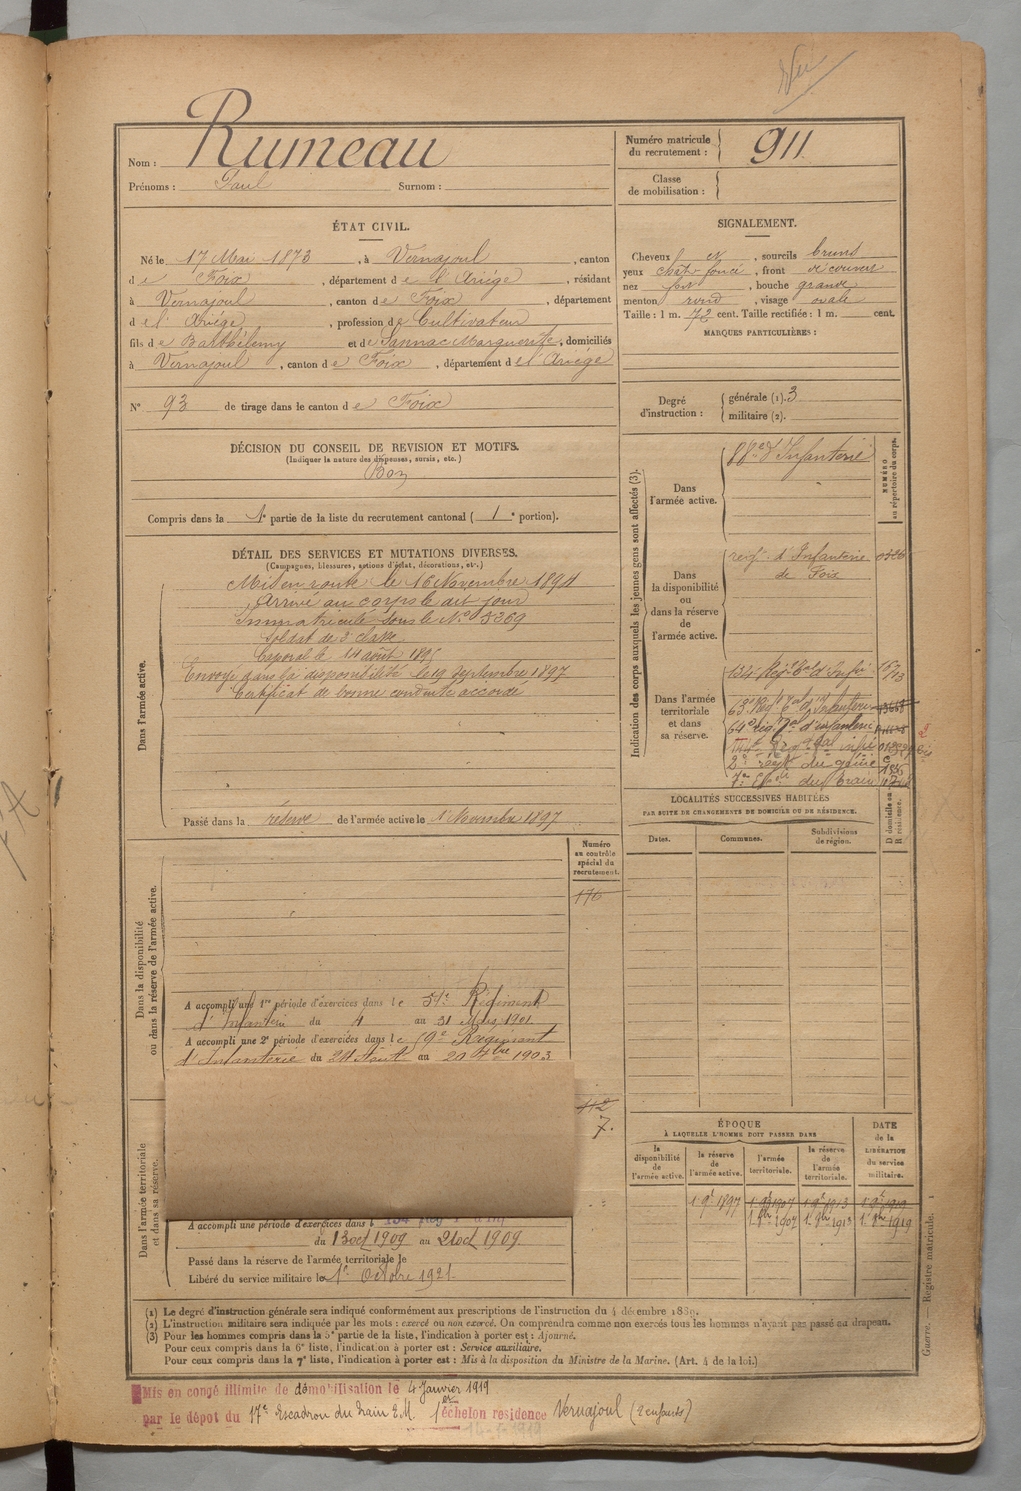 Vu
Nom : Rumeau
Prénoms : Paul Surnom :
Numéro matricule du recrutement : 911
Classe de mobilisation :
ÉTAT CIVIL.
Né le 17 Mai 1873, à Vernajoul, canton
de Foix, département de l'Ariége, résidant
à Vernajoul, canton de Foix, département
de l'Ariége, profession de Cultivateur
fils de Barthélemy et de Sannac Marguerite, domiciliés
à Vernajoul, canton de Foix, département de l'Ariége
N° 93 de tirage dans le canton de Foix
SIGNALEMENT.
Cheveux et, sourcils bruns
yeux chât foncé, front découvert
nez fort, bouche grande
menton rond, visage ovale
Taille : 1 m. 72 cent. Taille rectifiée : 1 m. cent.
MARQUES PARTICULIÈRES :
Degré d'instruction : générale (1). 3
militaire (2).
DÉCISION DU CONSEIL DE REVISION ET MOTIFS.
(Indiquer la nature des dispenses, sursis, etc.)
Bon
Compris dans la 1e partie de la liste du recrutement cantonal (1e portion).
DÉTAIL DES SERVICES ET MUTATIONS DIVERSES.
(Campagnes, blessures, actions d'éclat, décorations, etc.)
Dans l'armée active.
Mis en route le 16 Novembre 1894
Arrivé au corps le dit jour
Immatriculé sous le N° 5369
Soldat de 2e classe
Caporal le 14 août 1895
Envoyé dans la disponibilité le 19 Septembre 1897
Certificat de bonne conduite accordé
Passé dans la réserve de l'armée active le 1 Novembre 1897
Indication des corps auxquels les jeunes gens sont affectés (3).
NUMÉRO au répertoire du corps.
Dans l'armée active.
88e d'Infanterie
Dans la disponibilité ou dans la réserve de l'armée active.
regt. d'Infanterie
de Foix
Dans l'armée territoriale et dans sa réserve.
134e Regt Tal d'Infie
63e Regt Tal d'Infanterie
64e régt Tal d'infanterie
2e regt du génie
17e Esc du Train
LOCALITÉS SUCCESSIVES HABITÉES
PAR SUITE DE CHANGEMENTS DE DOMICILE OU DE RÉSIDENCE.
Dates. Communes. Subdivisions de région. D domicile ou R résidence.
Dans la disponibilité ou dans la réserve de l'armée active.
Numéro au contrôle spécial du recrutement.
176
A accompli une 1re période d'exercices dans le Régiment
d'Infanterie du 4 au 31 Mars 1901
A accompli une 2e période d'exercices dans le Régiment
d'Infanterie du 24 Août au 20 7bre 1903
Dans l'armée territoriale et dans sa réserve.
112
7.
A accompli une période d'exercices dans le 134 Reg T d'Inf
du 13 oct 1909 au 21 oct 1909
Passé dans la réserve de l'armée territoriale le
Libéré du service militaire le 1er Octobre 1921
ÉPOQUE
À LAQUELLE L'HOMME DOIT PASSER DANS
la disponibilité de l'armée active. la réserve de l'armée active. l'armée territoriale. la réserve de l'armée territoriale.
DATE de la LIBÉRATION du service militaire.
1 9e 1897 1 9e 1907 1 9e 1913 1 9e 1919
1. 8bre 1907 1. 8bre 1913 1. 8bre 1919
(1) Le degré d'instruction générale sera indiqué conformément aux prescriptions de l'instruction du 4 décembre 1889.
(2) L'instruction militaire sera indiquée par les mots : exercé ou non exercé. On comprendra comme non exercés tous les hommes n'ayant pas passé au drapeau.
(3) Pour les hommes compris dans la 5e partie de la liste, l'indication à porter est : Ajourné.
Pour ceux compris dans la 6e liste, l'indication à porter est : Service auxiliaire.
Pour ceux compris dans la 7e liste, l'indication à porter est : Mis à la disposition du Ministre de la Marine. (Art. 4 de la loi.)
Guerre. — Registre matricule.
Mis en congé illimité de démobilisation le 4 Janvier 1919
par le dépot du 17e Escadron du Train E.M. 1er échelon residence Vernajoul (2 enfants)